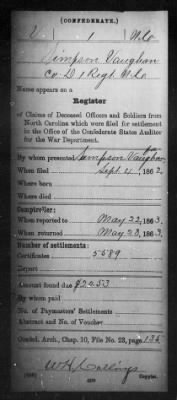 (CONFEDERATE.)
V 1 N.C.
Simpson Vaughan
Co. D 1 Regt. N.C.
Name appears on a
Register
of Claims of Deceased Officers and Soldiers from
North Carolina which were filed for settlement
in the Office of the Confederate States Auditor
for the War Department.
By whom presented Sampson Vaughan
When filed Sept 4, 1862.
Where born
Where died
Comptroller:
When reported to May 22, 1863.
When returned May 23, 1863.
Number of settlements:
Certificates 5589
Report
Amount found due $24.53
By whom paid
No. Paymasters' Settlements
Abstract and No. of Voucher
Confed. Arch., Chap. 10, File No. 23, page 136
Copyist.